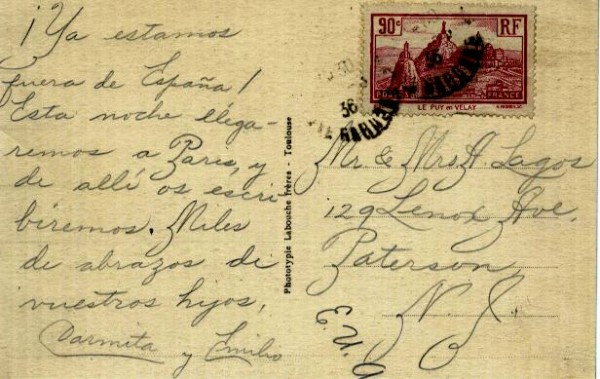 ¡Ya estamos
fuera de España!
Esta noche llega-
remos a Paris, y
de allé os escri
biremos. Miles
de abrazos de
vuestros hijos,
Carmita y Emilio
Phototypie Labouche frères - Toulouse
90c RF
POSTES FRANCE
LE PUY EN VELAY
36
36
Mr. & Mrs. A. Lagos
129 Lenox Ave.
Paterson
N. J.
E.U.A